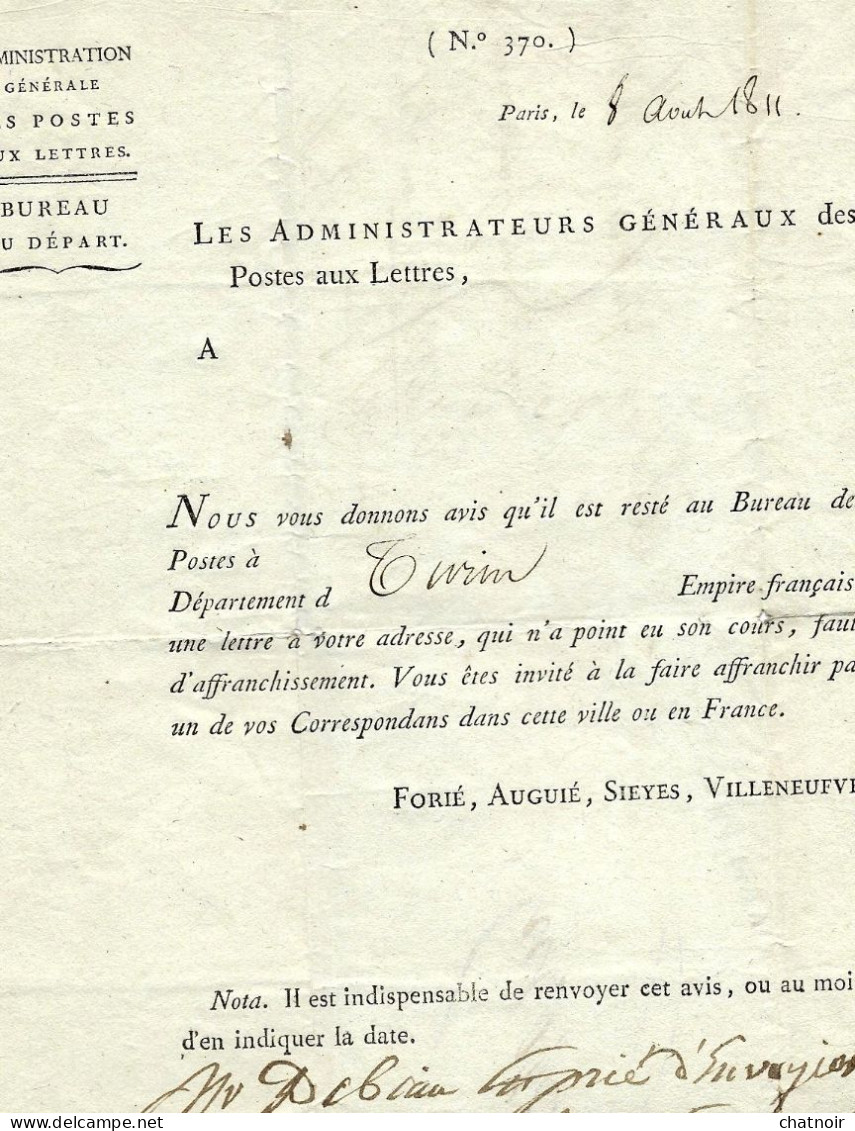 MINISTRATION
GÉNÉRALE
ES POSTES
UX LETTRES.
BUREAU
U DÉPART.
( N.º 370. )
Paris, le 8 Aout 1811.
LES ADMINISTRATEURS GÉNÉRAUX des
Postes aux Lettres,
A
Nous vous donnons avis qu'il est resté au Bureau de
Postes à Turin
Département d Empire français
une lettre à votre adresse, qui n'a point eu son cours, faut
d'affranchissement. Vous êtes invité à la faire affranchir pa
un de vos Correspondans dans cette ville ou en France.
FORIÉ, AUGUIÉ, SIEYES, VILLENEUFVE
Nota. Il est indispensable de renvoyer cet avis, ou au moi
d'en indiquer la date.
Mr prié d'Envoyer
chatnoir